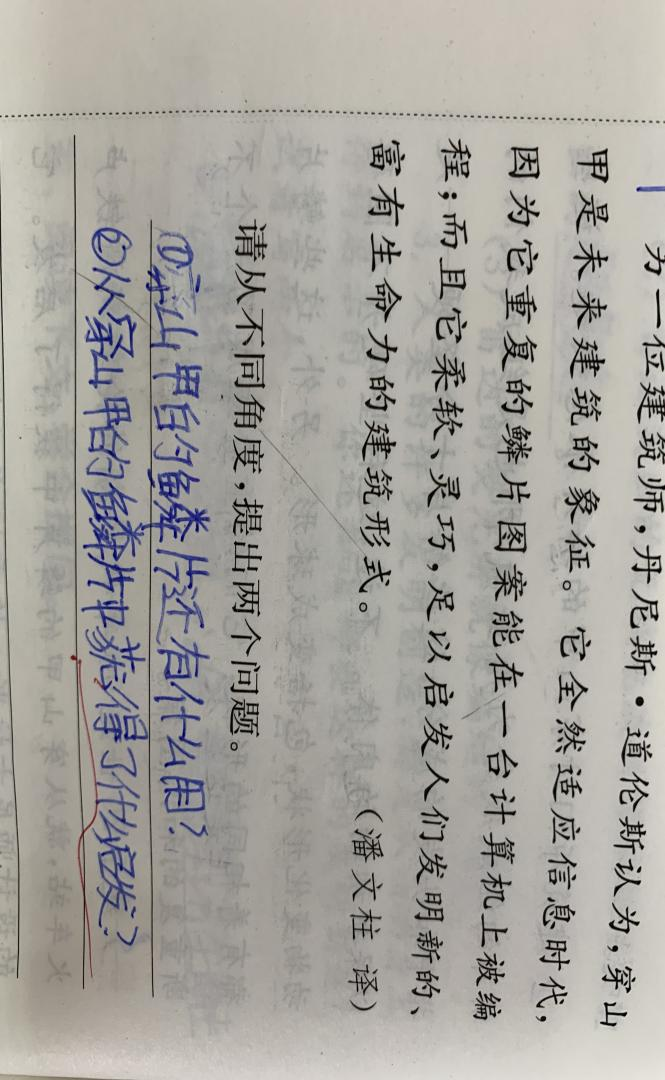 为一位建筑师，丹尼斯·道伦斯认为，穿山
甲是未来建筑的象征。它全然适应信息时代，
因为它重复的鳞片图案能在一台计算机上被编
程；而且它柔软、灵巧，足以启发人们发明新的、
富有生命力的建筑形式。
（潘文柱 译）
请从不同角度，提出两个问题。
①穿山甲的鳞片还有什么用？
②从穿山甲的鳞片中获得了什么启发？